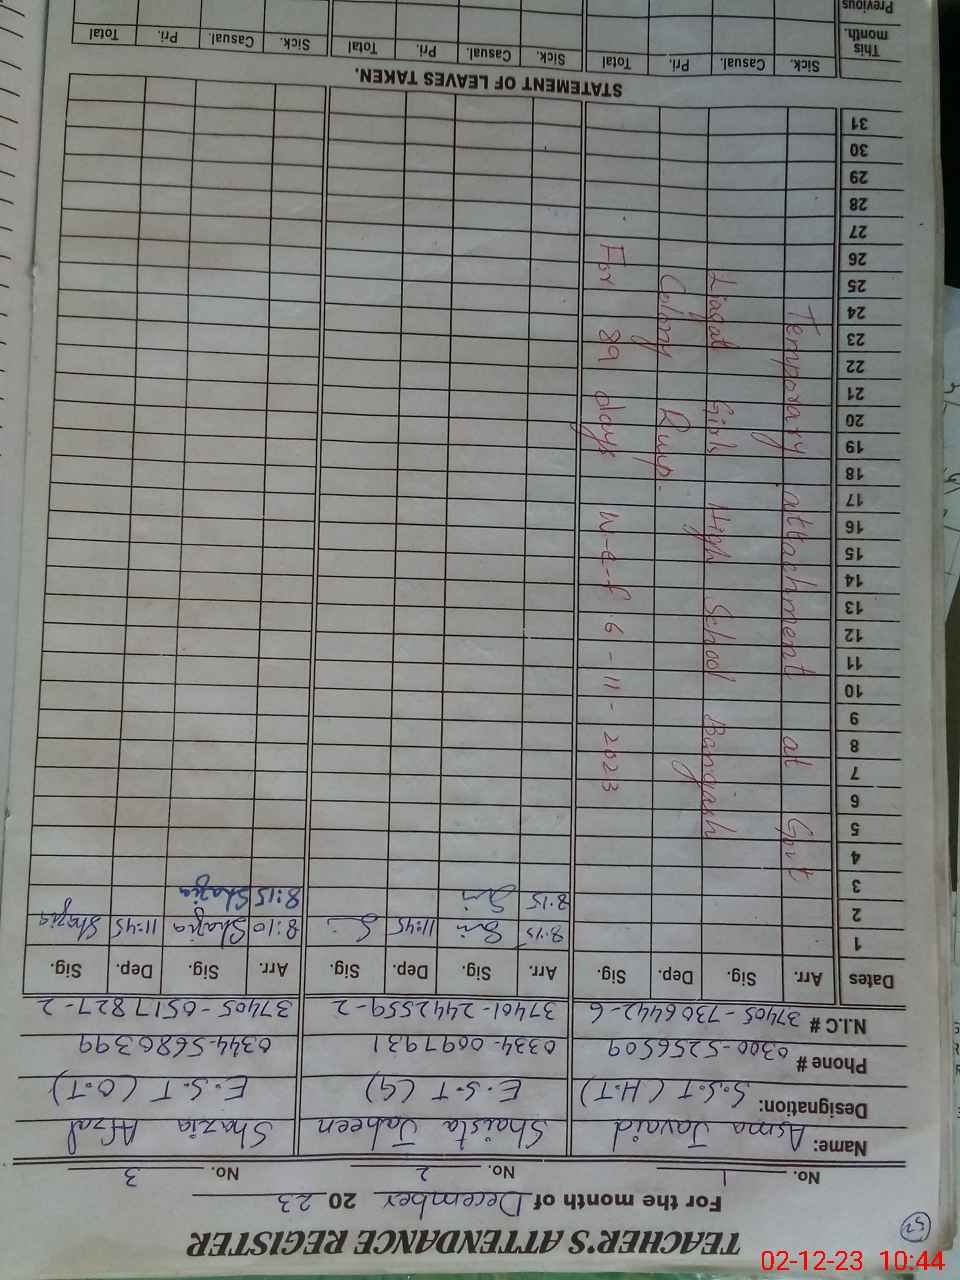 52
TEACHER'S ATTENDANCE REGISTER
For the month of December 20 23
No. 1 No. 2 No. 3
Name: Asma Javaid Shaista Jabeen Shazia Afzal
Designation: S.S.T (H.T) E.S.T (G) E.S.T (O.T)
Phone # 0300-5256509 0334-0097931 0344-5680399
N.I.C # 37405-7306442-6 37401-2442559-2 37405-0517827-2
Dates Arr. Sig. Dep. Sig. Arr. Sig. Dep. Sig. Arr. Sig. Dep. Sig.
1 8:15 11:45 8:10 Shazia 11:45 Shazia
2 8:15 8:15 Shazia
3
4
5
6
7
8
9
10
11
12
13
14
15
16
17
18
19
20
21
22
23
24
25
26
27
28
29
30
31
Temporary attachment at Govt
Liaqat Girls High School Bangash
Colony Rwp.
For 89 days w-e-f 6-11-2023
STATEMENT OF LEAVES TAKEN.
Sick. Casual. Pri. Total Sick. Casual. Pri. Total Sick. Casual. Pri. Total
This month.
Previous
02-12-23 10:44